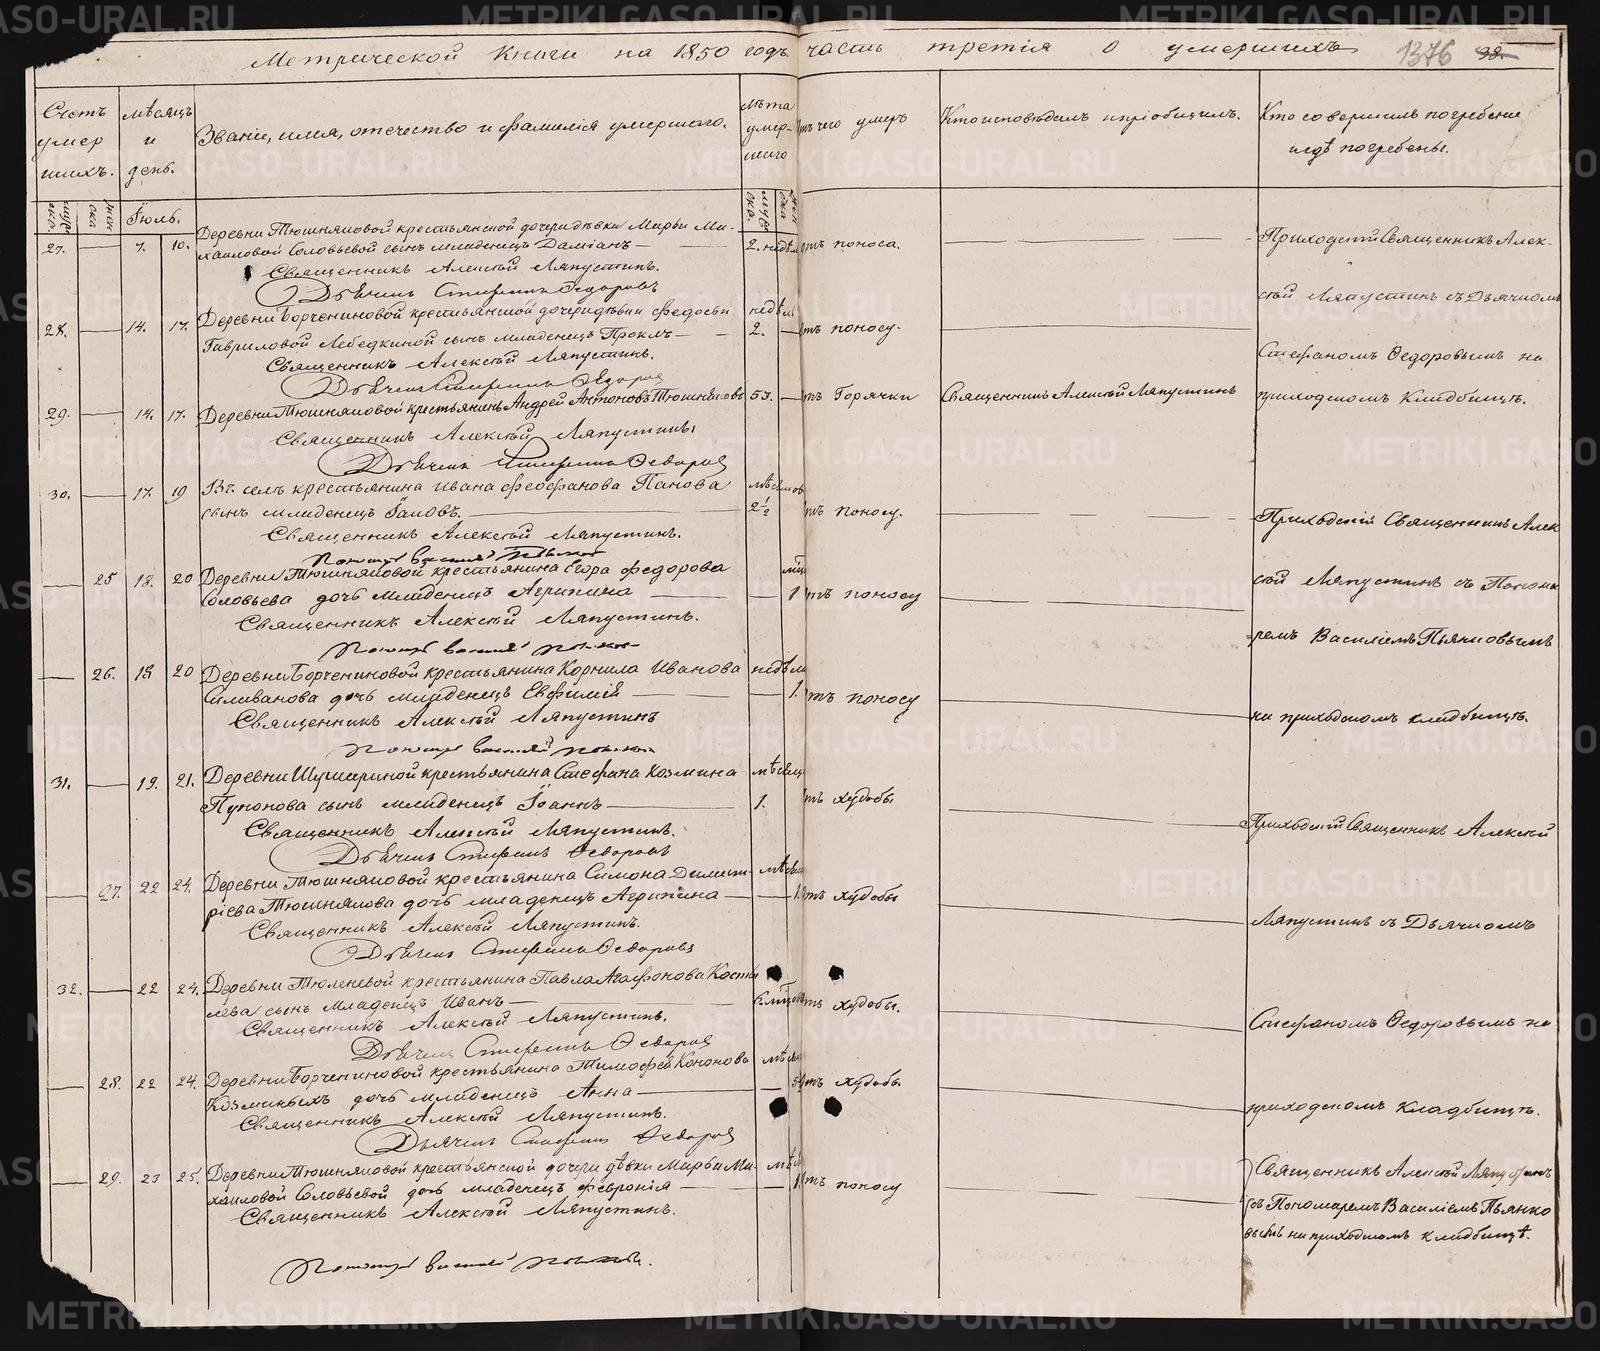 Метрической книги на 1850 годъ часть третія о умершихъ 1376 98.
Счетъ умершихъ.
мѣсяцъ и день.
Званіе, имя, отечество и фамилія умершаго.
лѣта умершаго
отъ чего умеръ
Кто исповѣдалъ и пріобщилъ.
Кто совершилъ погребеніе и гдѣ погребены.
Іюль.
27. 7. 10. Деревни Тюшняковой крестьянской дочери дѣвки Марьи Ми-
хаиловой Соловьевой сынъ младенецъ Даміанъ 2. недѣл отъ поноса.
Священникъ Алексѣй Ляпустинъ.
Дьячекъ Стефанъ Ѳедоровъ
Приходскій Священникъ Алек-
сѣй Ляпустинъ съ Дьячкомъ
Стефаномъ Ѳедоровымъ на
приходскомъ кладбищѣ.
28. 14. 17. Деревни Борчениновой крестьянской дочери дѣвки Федосьи недѣль
Гавриловой Лебедкиной сынъ младенецъ Проклъ 2. отъ поносу.
Священникъ Алексѣй Ляпустинъ.
Дьячекъ Стефанъ Ѳедоров
29. 14. 17. Деревни Тюшняковой крестьянинъ Андрей Антоновъ Тюшняковъ 53. отъ Горячки Священникъ Алексѣй Ляпустинъ
Священникъ Алексѣй Ляпустинъ
Дьячекъ Стефанъ Ѳедоров
30. 17. 19 Въ селѣ крестьянина Ивана Феофанова Панова мѣсяцов
сынъ младенецъ Іаковъ. 2 1/2 отъ поносу.
Священникъ Алексѣй Ляпустинъ.
Приходскій Священникъ Алек
сѣй Ляпустинъ съ Понома
ремъ Василіемъ Пьянковымъ
на приходскомъ кладбищѣ.
25 18. 20 Деревни Тюшняковой крестьянина Егора Федорова
Соловьева дочь младенецъ Агрипина 1 отъ поносу
Священникъ Алексѣй Ляпустинъ.
26. 18 20 Деревни Борчениновой крестьянина Корнила Иванова недѣли
Силиванова дочь младенецъ Евфимія 1. отъ поносу
Священникъ Алексѣй Ляпустинъ
31. 19. 21. Деревни Шушариной крестьянина Стефана Козмина мѣсяц
сынъ младенецъ Іоаннъ 1. отъ худобы
Священникъ Алексѣй Ляпустинъ.
Дьячекъ Стефанъ Ѳедоровъ
Приходскій Священникъ Алексѣй
Ляпустинъ съ Дьячкомъ
Стефаномъ Ѳедоровымъ на
приходскомъ кладбищѣ.
27. 22 24. Деревни Тюшняковой крестьянина Симона Димит-
ріева Тюшнякова дочь младенецъ Агрипина 1. отъ худобы
Священникъ Алексѣй Ляпустинъ.
Дьячекъ Стефанъ Ѳедоровъ
32. 22 24. Деревни Тюленевой крестьянина Павла Агафонова Косты
лева сынъ младенецъ Иванъ отъ худобы.
Священникъ Алексѣй Ляпустинъ.
Дьячекъ Стефанъ Ѳедоров
28. 22 24. Деревни Борчениновой крестьянина Тимофея Кононова
Козминыхъ дочь младенецъ Анна отъ худобы
Священникъ Алексѣй Ляпустинъ.
Дьячекъ Стефанъ Ѳедоров
29. 23 25. Деревни Тюшняковой крестьянской дочери дѣвки Марьи Ми-
хаиловой Соловьевой дочь младенецъ Февронія 1. отъ поносу
Священникъ Алексѣй Ляпустинъ.
Священникъ Алексѣй Ляпустинъ
съ Пономаремъ Василіемъ Пьянко
вымъ на приходскомъ кладбищѣ.
METRIKI.GASO-URAL.RU